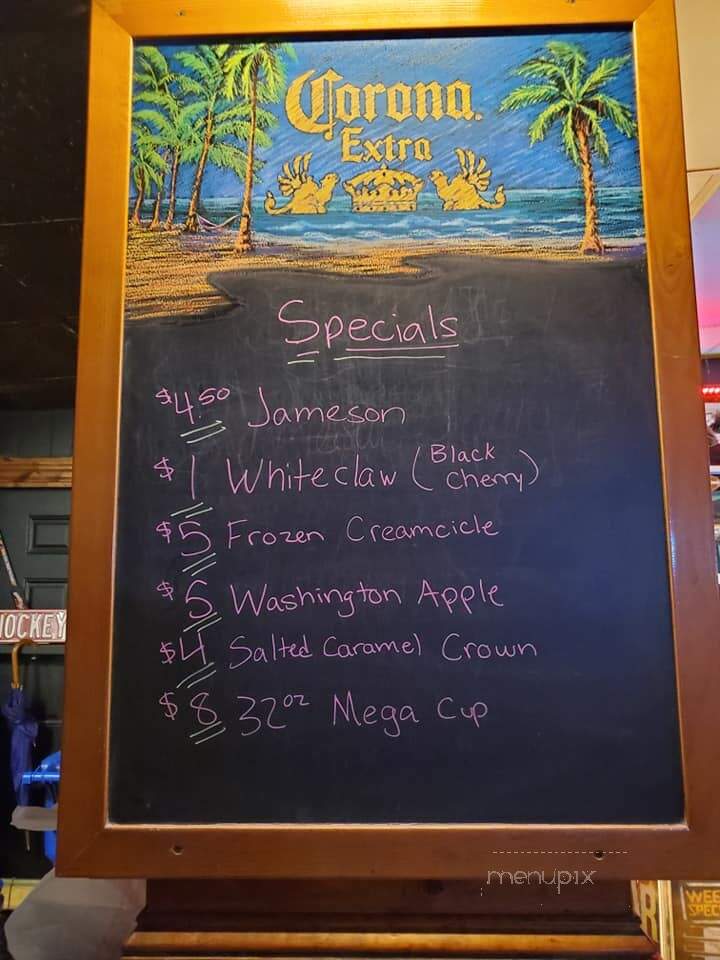 Corona.
Extra
Specials
$4.50 Jameson
$1 Whiteclaw (Black Cherry)
$5 Frozen Creamcicle
$5 Washington Apple
$4 Salted Caramel Crown
$8 32oz Mega Cup
HOCKEY
menupix